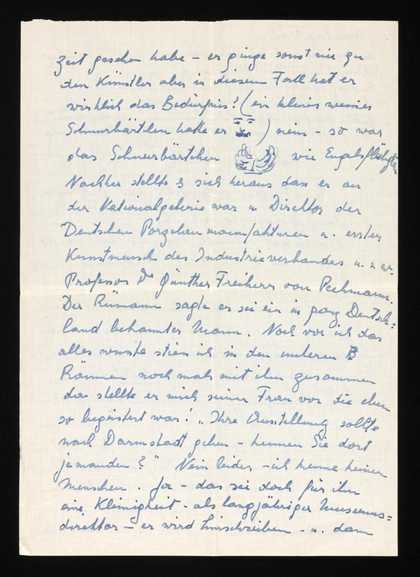 Zeit gesehen habe – er ginge sonst nie zu
den Künstler aber in diesem Fall hat er
wirklich das Bedürfnis! (ein kleines weisses
Schnurbärtchen hatte er ) nein – so war
das Schnurbärtchen wie Engelsflügel
Nachher stellte s sich heraus das er an
der Nationalgalerie war u Direktor der
Deutschen Porzellan manufakturen u. erster
Kunstmensch des Industrieverbandes u. u. er.
Professor Dr Günther Freiherr von Pechmann.
Der Rümann sagte er sei ein in ganz Deutsch-
land bekannter Mann. Noch vor ich das
alles wusste stiess ich in den unteren
Räumen noch mals mit ihm zusammen
da stellte er mich seiner Frau vor die eben
so begeistert war! „Ihre Ausstellung sollte
nach Darmstadt gehen – kennen Sie dort
jemanden?" Nein leider – ich kenne keinen
Menschen. Ja – das sie doch für ihn
eine Kleinigkeit – als langjähriger Museums=
direktor – er wird hinschreiben – u. dann